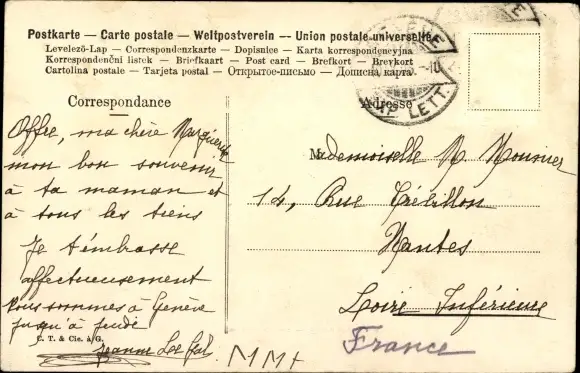 Postkarte — Carte postale — Weltpostverein — Union postale universelle
Levelező-Lap — Correspondenzkarte — Dopisnice — Karta korrespondencyjna
Korrespondenční listek — Briefkaart — Post card — Brefkort — Brevkort
Cartolina postale — Tarjeta postal — Открытое-письмо — Дописна карта
Correspondance
Adresse
EXP. LETT.
Offre, ma chère Marguerite
mon bon souvenir
à ta maman et
à tous les tiens
Je t'embrasse
affectueusement
Nous sommes à Genève
jusqu'à jeudi
C. T. & Cie. à G.
Jeanne Le Gal
Mademoiselle M. Mounier
14, Rue Crébillon
Nantes
Loire Inférieure
France